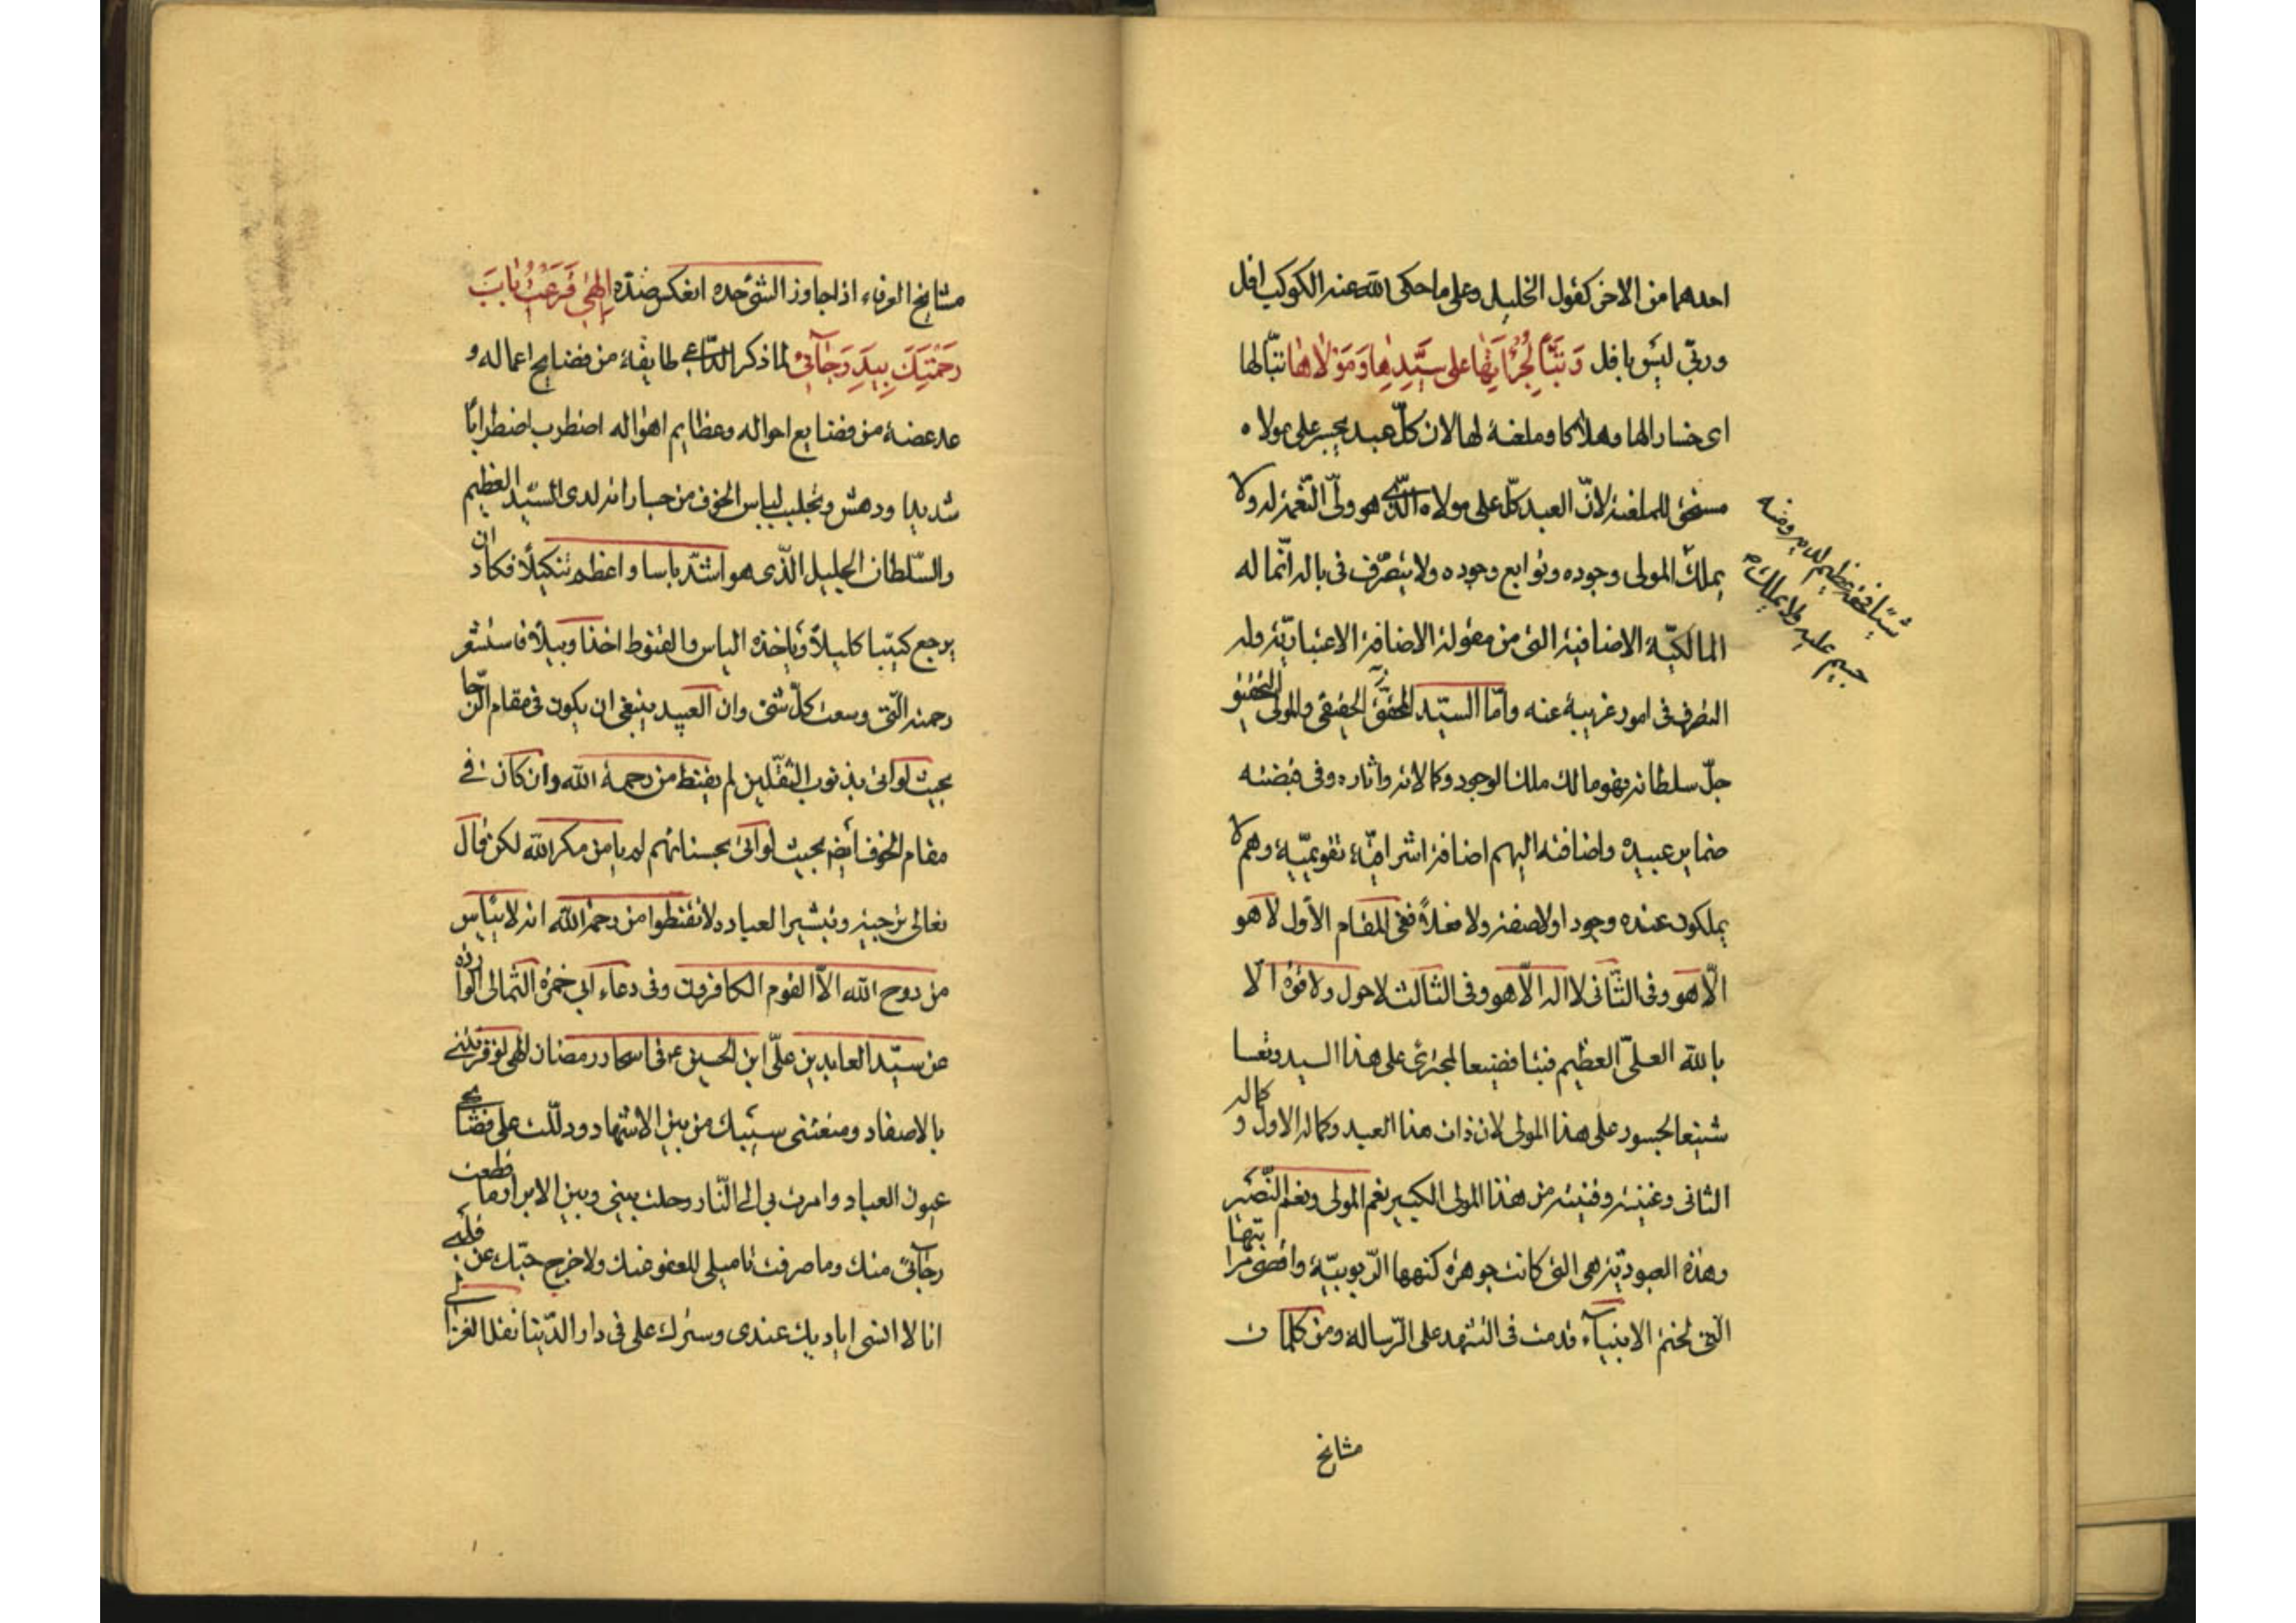 احدهما من الاخر كقول الخليل وعلى ما حكى الله عنه الكوكب افل
وربّي ليس بافل وَتَبًّا لِجُرْاَتِهٰا على سَيِّدِهٰا وَمَوْلاٰهٰا تبّا لها
اى خسارا لها وهلاكا وملعنة لها لان كلّ عبد يجسر على مولاه
مستحق للملعنة لانّ العبد كلّ على مولاه الّذى هو ولىّ النّعمة له ولا
يملك المولى وجوده وتوابع وجوده ولا يتصرّف فى باله انّما له
المالكيّة الاضافية التى من مقولة الاضافة الاعتباريّة وله
التصرف فى امور غريبة عنه وامّا السيّد المحقّق الحقيقى والمولى التحقيقى
جلّ سلطانه فهو مالك ملك الوجود وكمالاته واثاره وفى قبضته
ضماير عبيده واضافته اليهم اضافة اشراقيّة تقويميّة وهم لا
يملكون عنده وجودا ولا صفة ولا فعلاً ففى المقام الاوّل لا هو
الّا هو وفى الثّانى لا اله الّا هو وفى الثّالث لا حول ولا قوّة الّا
بالله العلىّ العظيم فتبّا فضيعا لمجترئ على هذا السيد وتعسا
شنيعا لجسور على هذا المولى لان ذات هذا العبد وكماله الاول وكماله
الثانى وغنيته وقنيته من هذا المولى الكبير نعم المولى ونعم النّصير
وهذه العبوديّة هى التى كانت جوهرة كنهها الرّبوبيّة واقصى مراتبها
التى لختم الانبيآء قدمت فى التشهد على الرّسالة ومن كلمات
مشايخ
شيئا حقيرا عظيم لديه وضنه
جسيم عليه ولا يملك
مشايخ العرفاء اذا جاوز الشئ حده انعكس ضدّه اِلٰهى قَرَعْتُ بٰابَ
رَحْمَتِكَ بِيَدِ رَجٰآئى لما ذكر الدّاعى طايفة من فضايح اعماله و
عد عضة من فضايع احواله وعظايم اهواله اضطرب اضطرابًا
شديدا ودهش وتجلبب لباس الخوف من جساراته لدى السّيّد العظيم
والسّلطان الجليل الّذى هو اشدّ باسا واعظم تنكيلاً فكاد ان
يرجع كئيبا كليلاً وياخذه الياس والقنوط اخذا وبيلاً فاستشعر
رحمته الّتى وسعت كلّ شئ وان العبد ينبغى ان يكون فى مقام الرّجا
بحيث لو اتى بذنوب الثقلين لم يقنط من رحمة الله وان كان فى
مقام الخوف ايضا بحيث لو اتى بحسناتهم لم يامن مكر الله لكن قال
تعالى ترجية وتبشيرا لعباد ولا تقنطوا من رحمة الله انه لا ييأس
من روح الله الاّ القوم الكافرون وفى دعاء ابى حمزة الثمالى الوارده
عن سيّد العابدين علىّ ابن الحسين ع فى اسحار رمضان الهى لو قرنتنى
بالاصفاد ومنعتنى سيبك من بين الاشهاد ودللت على فضائحى
عيون العباد وامرت بى الى النّار وحلت بينى وبين الابرار ما قطعت
رجآئى منك وما صرفت تاميلى للعفو عنك ولا خرج حبّك عن قلبى
انا لا انسى اياديك عندى وسترك على فى دار الدّنيا نقل الغزالى